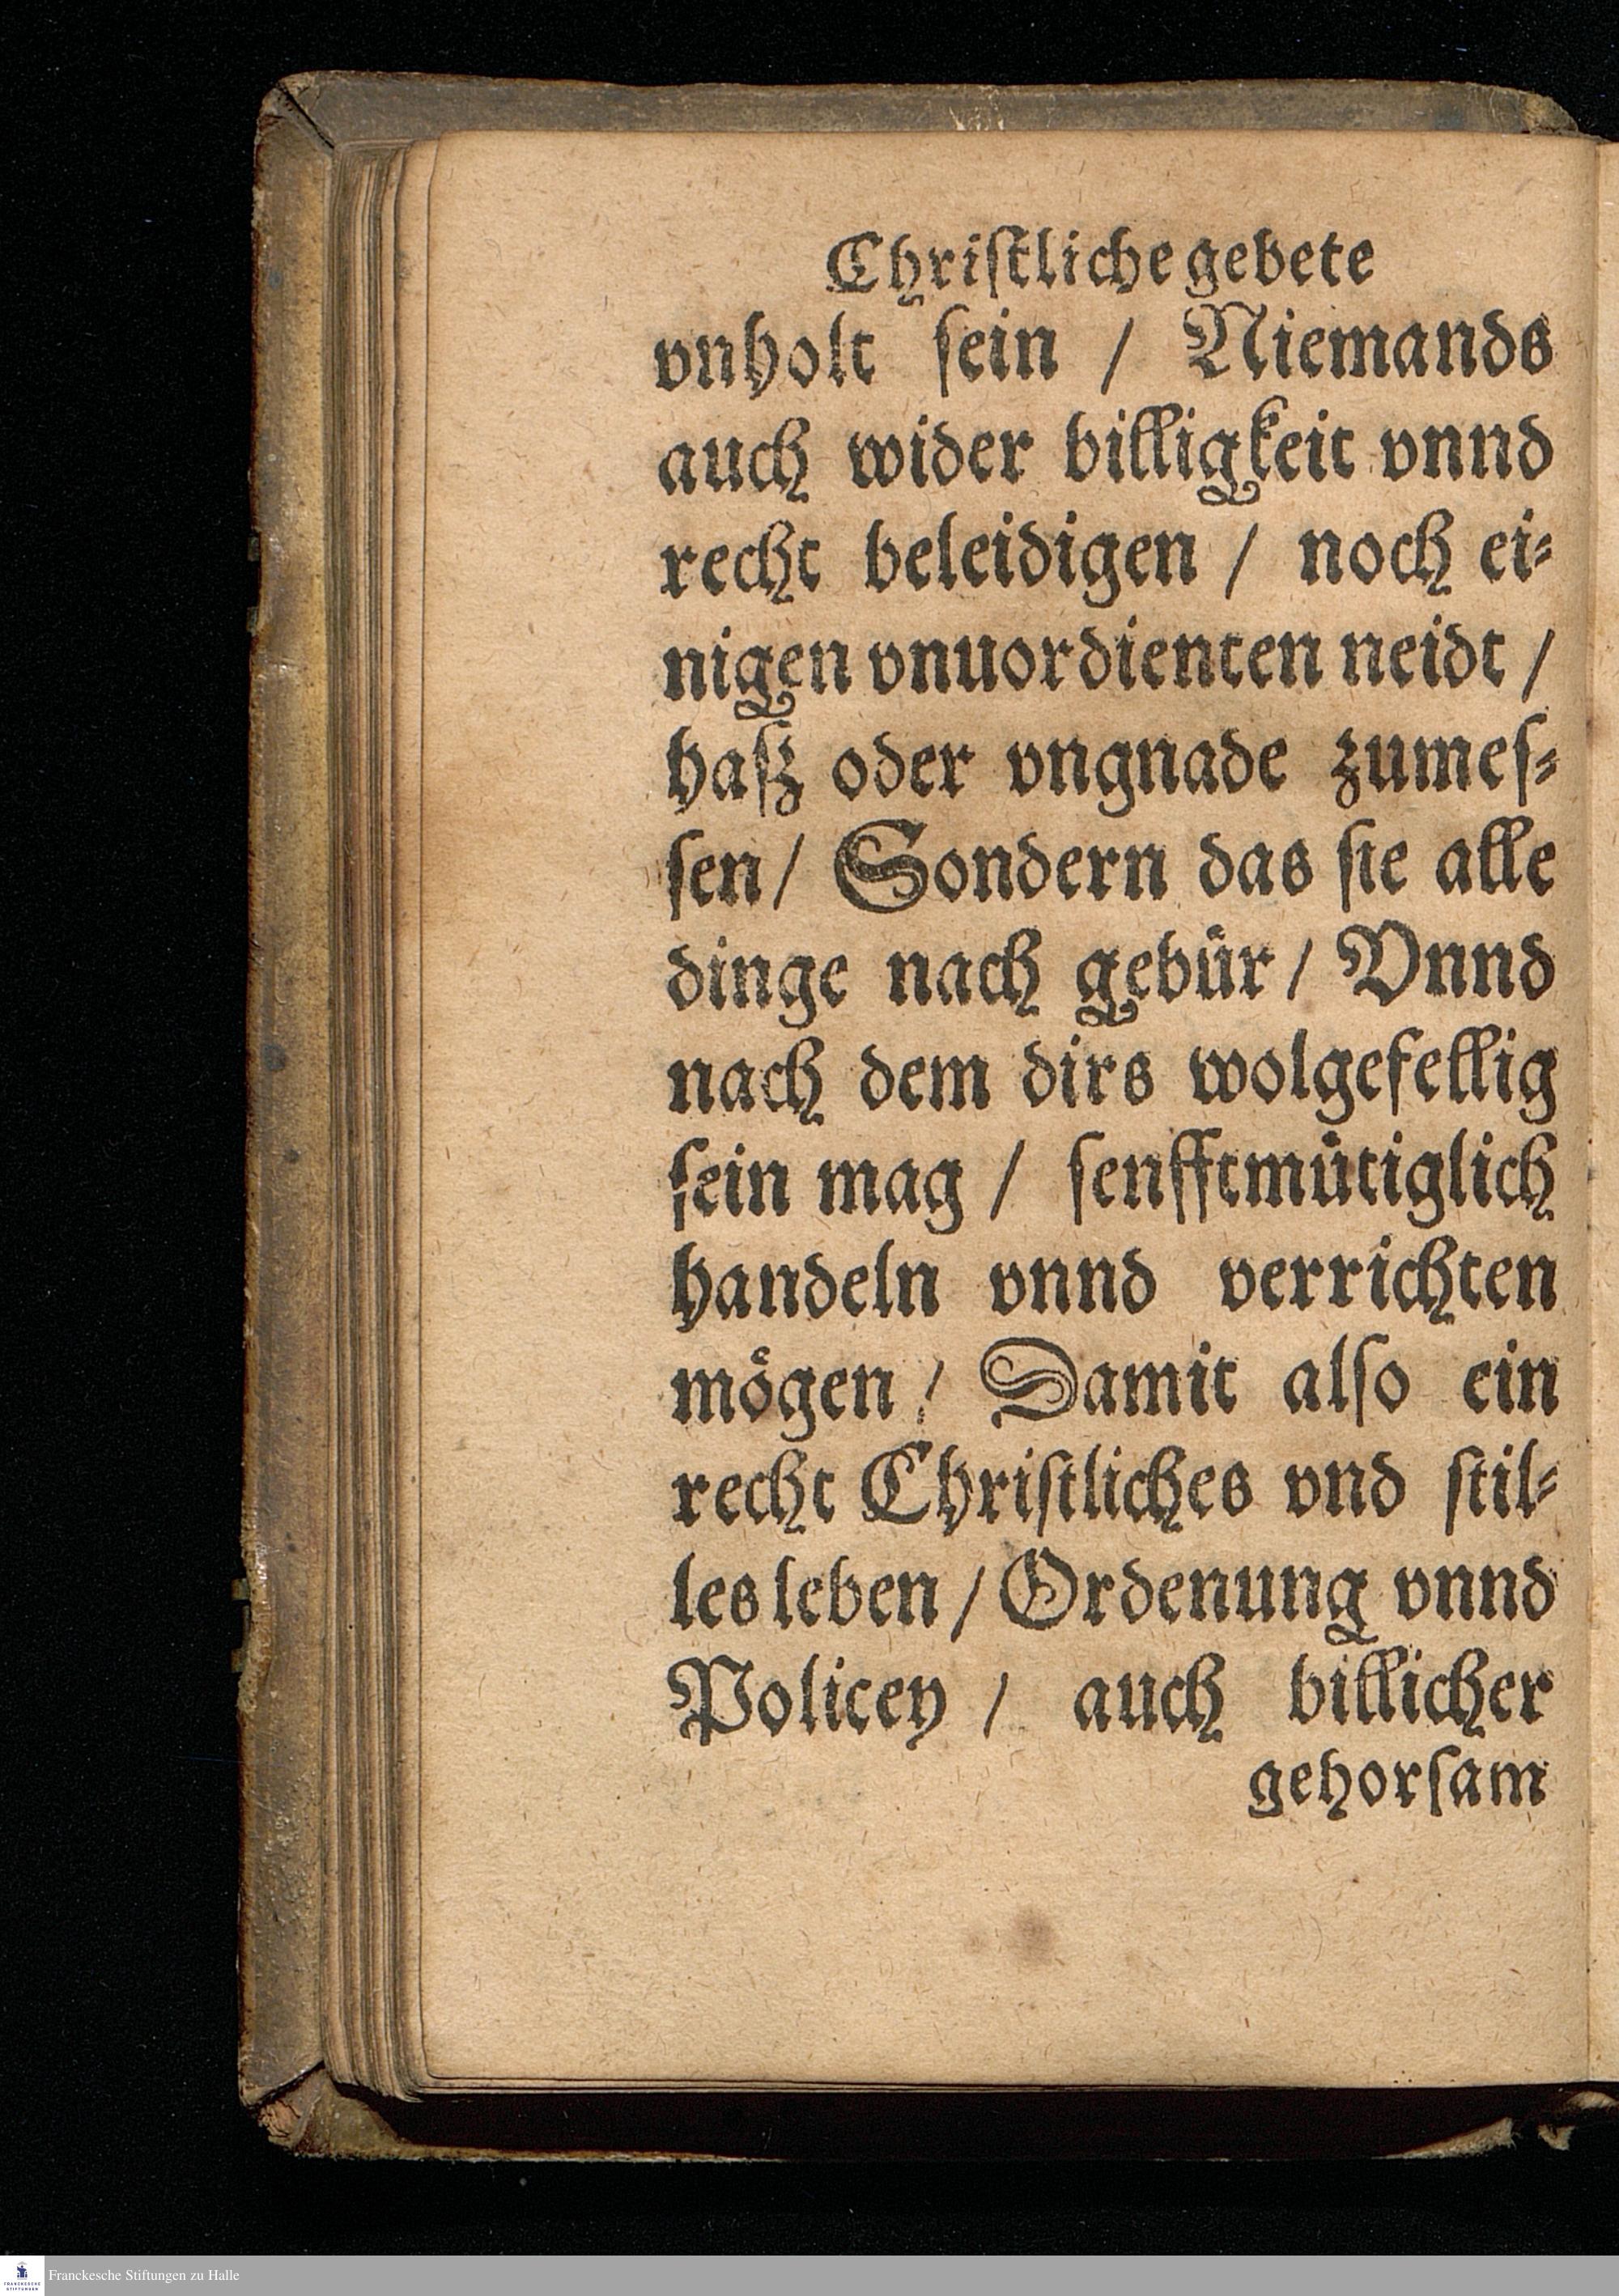 Chriſtliche gebete
vnholt ſein / Niemands
auch wider billigkeit vnnd
recht beleidigen / noch ei⸗
nigen vnuordienten neidt /
haſz oder vngnade zumeſ⸗
ſen / Sondern das ſie alle
dinge nach gebuͤr / Vnnd
nach dem dirs wolgefellig
ſein mag / ſenfftmuͤtiglich
handeln vnnd verrichten
moͤgen / Damit alſo ein
recht Chriſtliches vnd ſtil⸗
les leben / Ordenung vnnd
Policey / auch billicher
gehorſam
Franckesche Stiftungen zu Halle
FRANCKESCHE
STIFTUNGEN